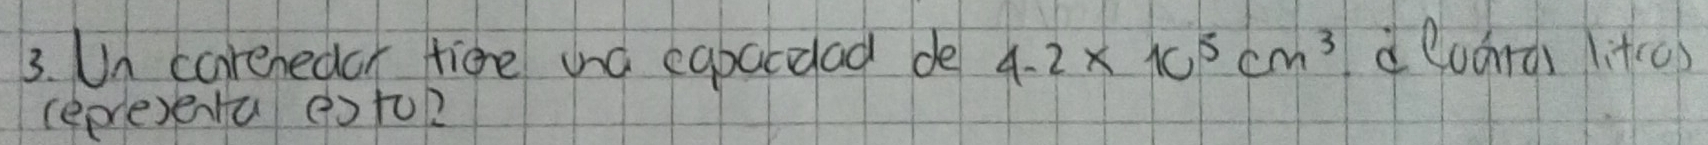 3. Un contenedor tiene una capacidad de 4.2 x 10⁵ cm³. ¿Cuántos litros
representa esto?